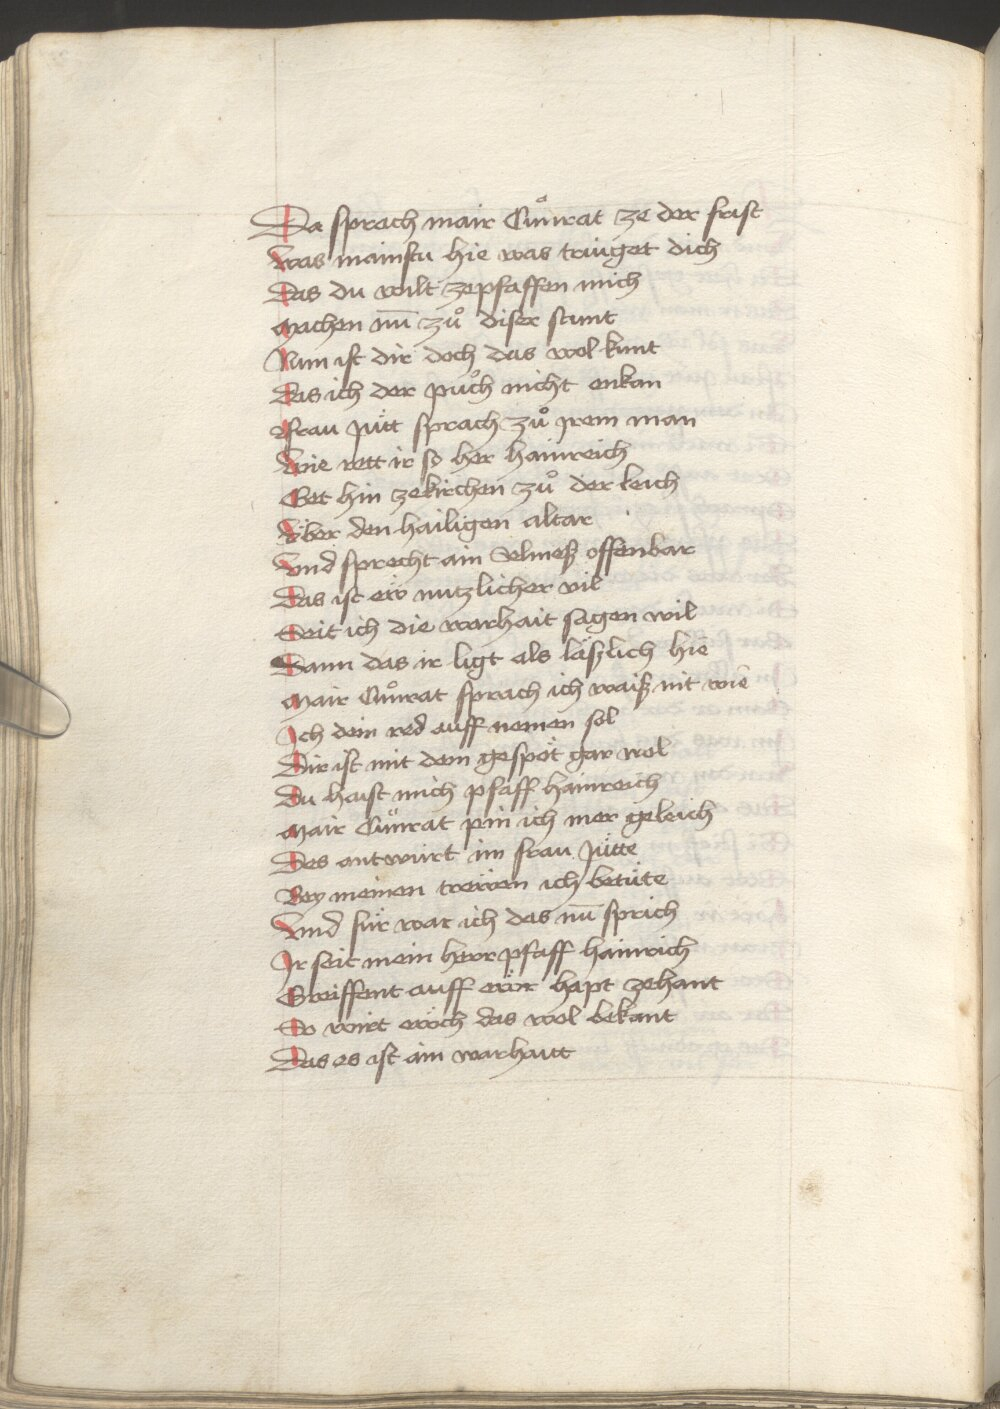 Da sprach mair Cuͦnrat ze der frist
Was mainstu hie was tringet dich
Das du wilt zepfaffen mich
Machen nu̅ zuͦ diser stunt
Nun ist dir doch das wol kunt
Das ich der puͦch nicht enkan
Frau Jütt sprach zuͦ jrem man
Wie rett ir so her hainreich
Get hin zekirchen zuͦ der leich
Vͤber den hailigen altar
Vnd sprecht ain Selmeß offenbar
Das ist eẅ nutzlicher vil
Seit ich die warhait sagen wil
Dann das ir ligt als läßlich hie
Mair Cuͦnrat sprach ich waiß nit wie
Ich dein red auff nemen sol
Dir ist mit dem gespöt gar wol
Du haist mich pfaff hainreich
Mair Cuͦnrat pin ich mer geleich
Des antwürt im frau Jütte
Bey meinen treẅen ich betüte
Vnd für war ich das nu̅ sprich
Ir seit mein herr pfaff hainrich
Greiffent auff eẅr hapt zehant
So wirt eẅch das wol bekant
Das es ist ain warhait